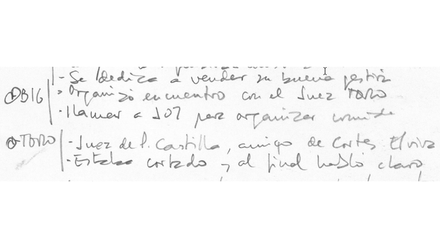 - Se dedica a vender su buena gestión
BIG - Organizó encuentro con el Juez TORO
- Llamar a JO7 para organizar comida
TORO - Juez de P. Castilla, amigo de Cortés Elvira
- Estaba cortado y al final habló claro,